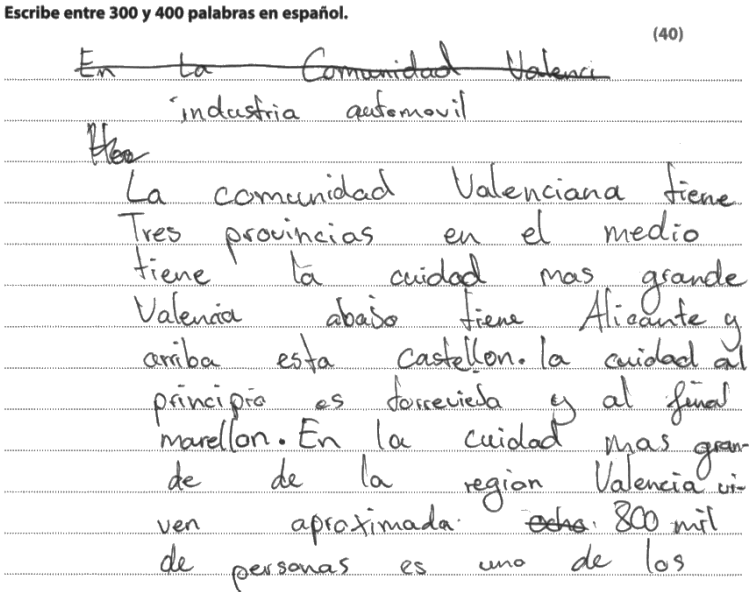 Escribe entre 300 y 400 palabras en español.
(40)
En La Comunidad Valenci
industria automovil
La comunidad Valenciana tiene
Tres provincias en el medio
tiene la cuidad mas grande
Valencia abajo tiene Alicante y
arriba esta castellon. la cuidad al
principio es torrevieja y al final
marellon. En la cuidad mas gran-
de de la region Valencia vi-
ven aproximada. ocho. 800 mil
de personas es uno de los